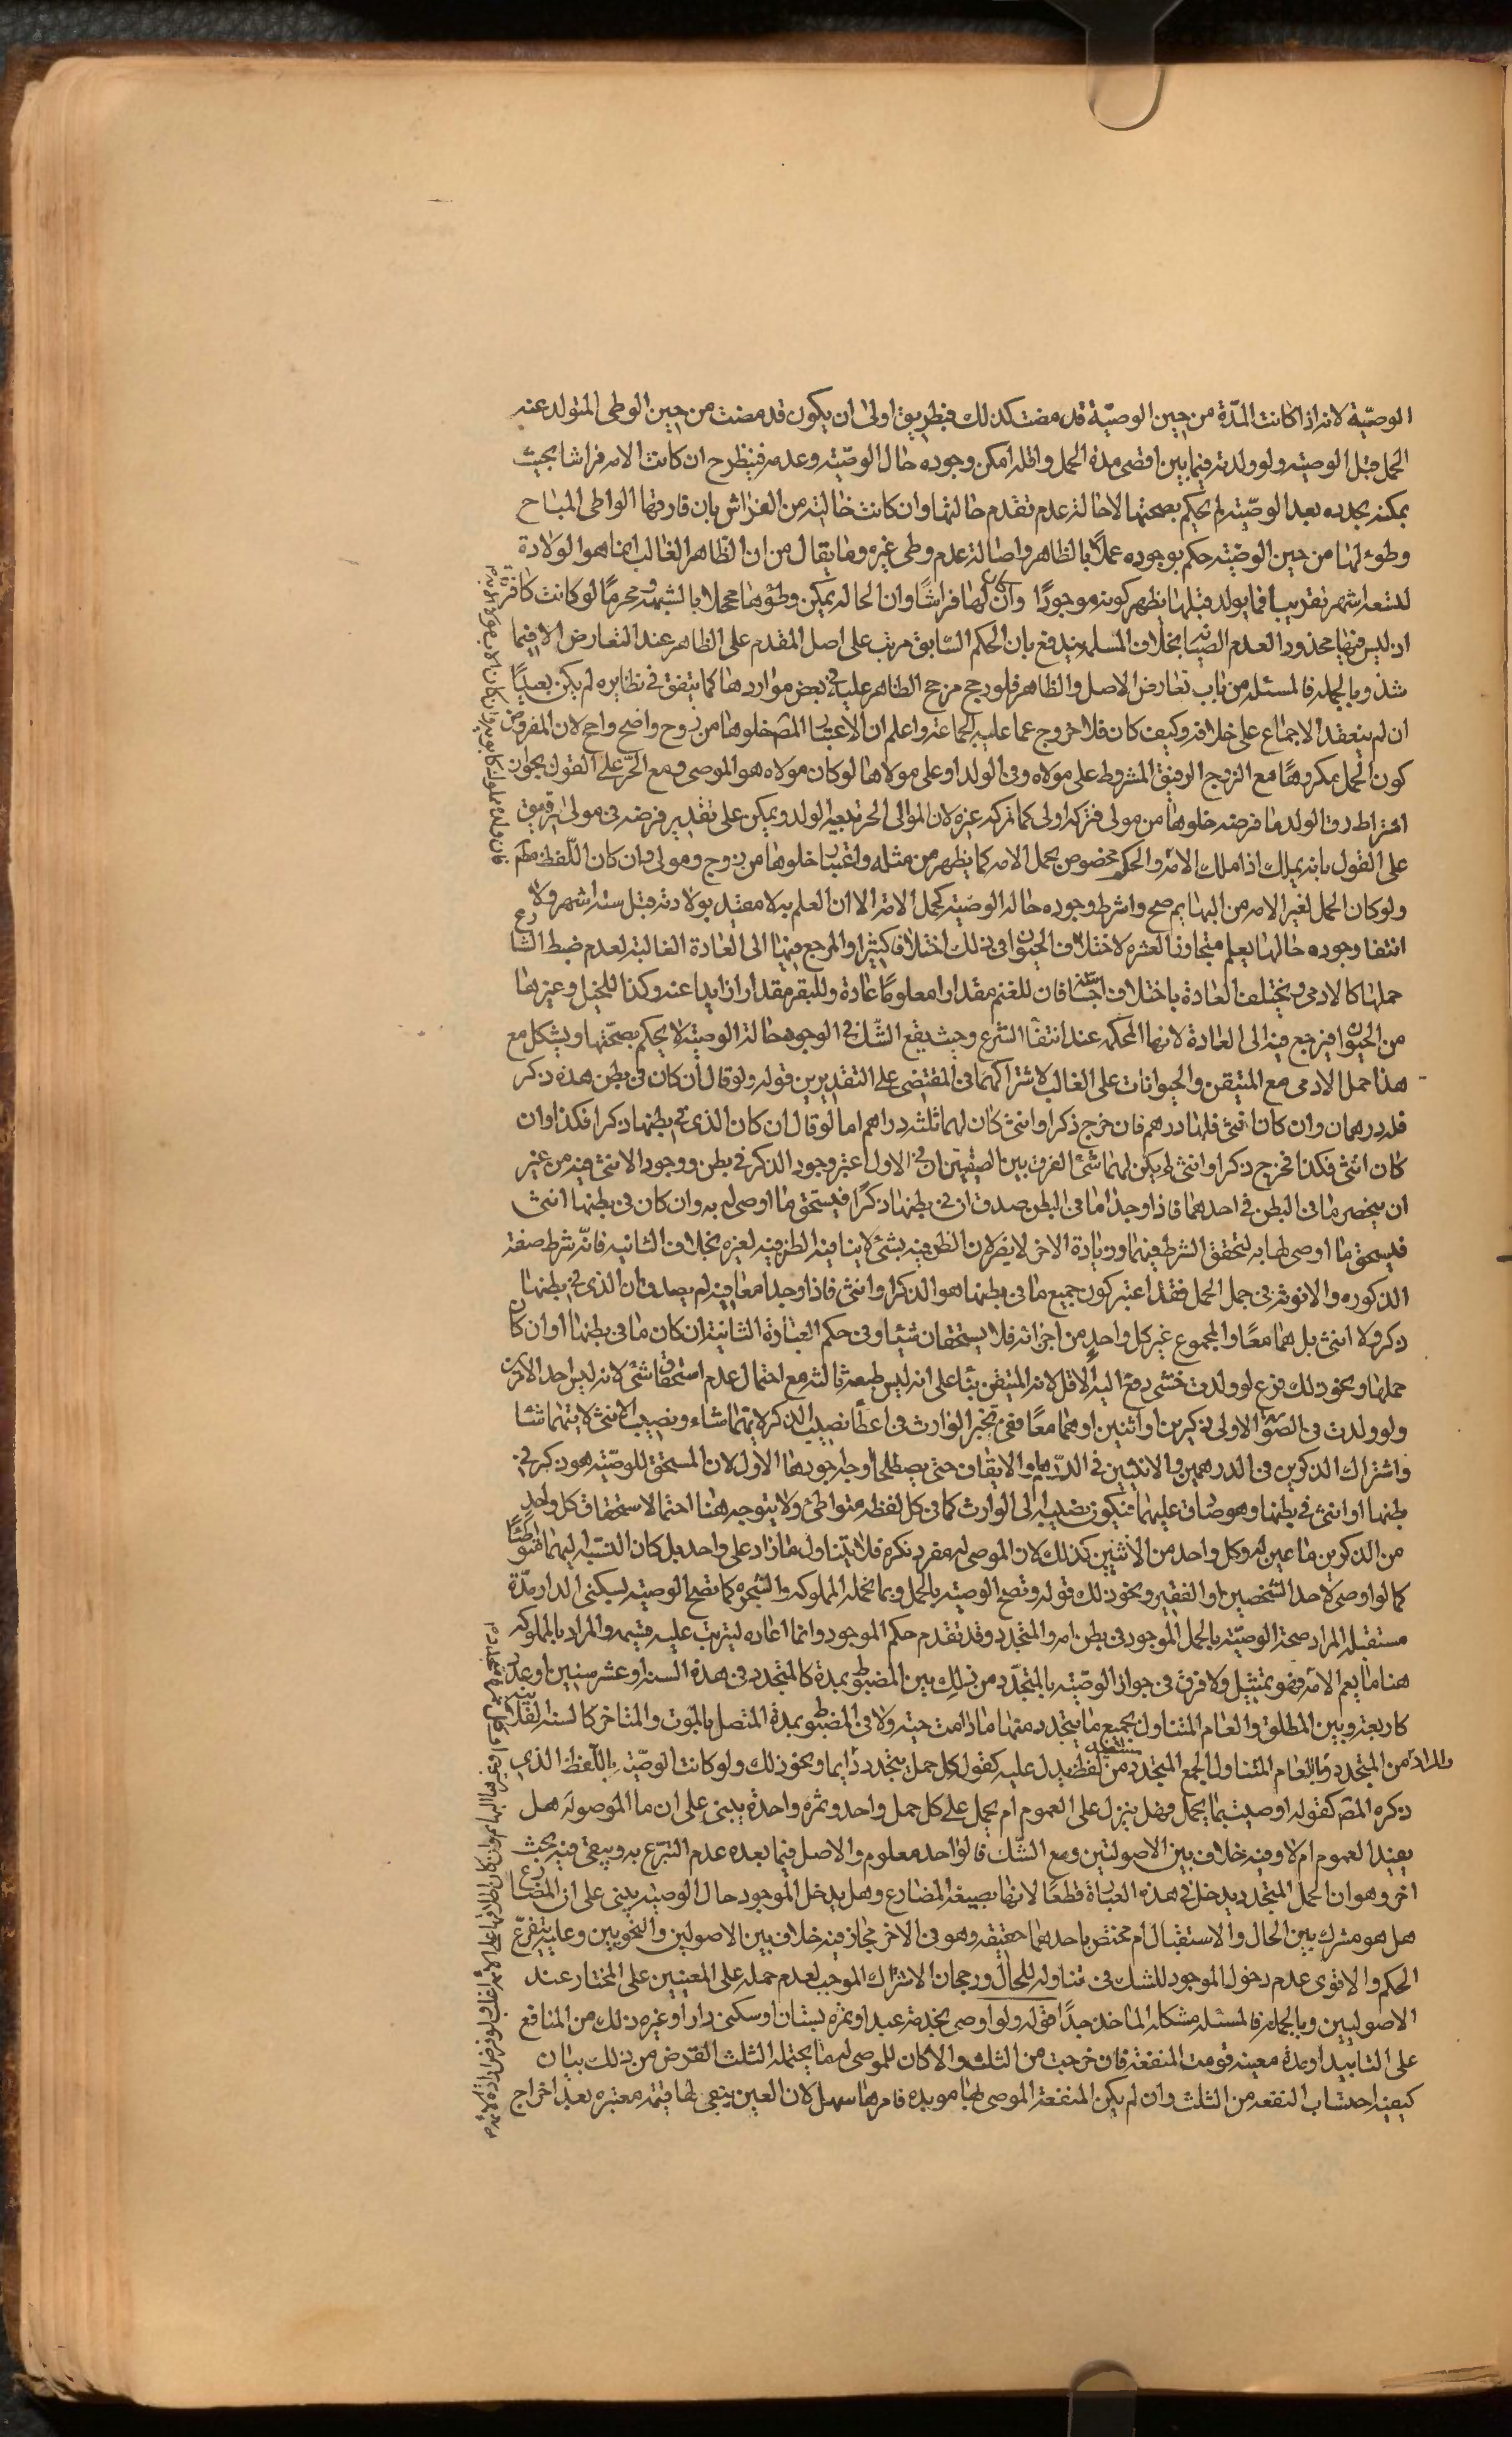 الوصيّة لانه اذا كانت المدّة من حين الوصيّة قد مضت كذلك فبطريق اولى ان يكون قد مضت من حين الوطى المتولد عنه
الحمل قبل الوصيته ولو ولدته فيما بين اقصى مدة الحمل واقله امكن وجوده حال الوصيّته وعدمه فينظر ح ان كانت الامه فراشا بحيث
يمكنه تجدده بعد الوصيّته لم يحكم بصحتها لاحالة عدم تقدم حالتها وان كانت خاليته من الفراش بان فارقها الواطى المباح
وطؤ لها من حين الوصيّته حكم بوجوده عملاً بالظاهر واصالة عدم وطى غيره وما يقال من ان الظاهر الغالب انما هو الولادة
لتسعه اشهر تقريبا فما يولد قبلها يظهر كونه موجودًا وان كان لها فراشًا وان الحاله يمكن وطؤها محللا بالشبهه ومحرمًا لو كانت كافرة
اذ ليس فيها محذور العدم الصيانه بخلاف المسلمه يندفع بان الحكم السّابق مرتب على اصل المقدم على الظاهر عند التعارض الا فيما
شذ وبالجمله فالمسئله من باب تعارض الاصل والظاهر فلو رجح مرجح الظاهر عليه في بعض مواردها كما يتفق في نظايره لم يكن بعيدًا
ان لم ينعقد الاجماع على خلافه وكيف كان فلا خروج عما عليه الجماعة واعلم ان اعتبار المص خلوها من زوج واضح واجح لان المفروض
كون الحمل مكروهًا مع الزوج الرقيق المشروط على مولاه رق الولد او على مولاها لو كان مولاه هو الموصى ومع الحرّ على القول بجواز
اشتراط رق الولد ما فرضه خلوها من مولى فتركه اولى كما تركه غيره لان الموالى الحر تبعيه الولد ويمكن على تقدير فرضه فى مولى رقيق
على القول بانه يملك اذا ملك الامه والحكم مخصوص بحمل الامه كما يظهر من مثله واعتبار خلوها من زوج ومولى وان كان اللّفظ مطلقا
ولو كان الحمل لغير الامه من البهايم صح واشرط وجوده حاله الوصيته كحمل الامه الا ان العلم به لا مقيد بولادته قبل سته اشهر ولا
انتفا وجوده حالها يعلم متجاوز العشره لاختلاف الحيوان فى ذلك اختلافا كثيرا والمرجع فيها الى العادة الغالبة لعدم ضبط الشارع
حملها كالادمى ويختلف العادة باختلاف اجناسه فان للغنم مقدارا معلومًا عادة وللبقر مقدارا زايدا عنه وكذا للخيل وغيرها
من الحيوان فيرجع فيه الى العادة لانها المحكمه عند انتفا الشرع وحيث يقع الشّك فى الوجود حالة الوصيّته لا يحكم بصحّتها ويشكل مع
هذا حمل الادمى مع المتيقن والحيوانات على الغالب لاشتراكهما فى المقتضى على التقديرين قوله ولو قال ان كان فى بطن هذه ذكر
فله درهمان وان كان انثى فلها درهم فان خرج ذكرا وانثى كان لهما ثلثه دراهم اما لو قال ان كان الذى فى بطنها ذكرا فكذا وان
كان انثى فكذا فخرج ذكرا وانثى لم يكن لهما شئ الفرق بين الصيغتين ان فى الاول اعتبر وجود الذكر فى بطن ووجود الانثى فيه من غير
ان يحصر ما فى البطن فى احدهما فاذا وجدا ما فى البطن صدق ان فى بطنها ذكرًا فيستحق ما اوصى له به وان كان فى بطنها انثى
فيستحق ما اوصى لها به لتحقق الشرط فيهما وزيادة الاخر لا يضر لان الظرفيه بشئ لا ينافيه الظرفيه لغيره بخلاف الثانيه فانّه شرط صفة
الذكوره والانوثة فى جمل الحمل فقد اعتبر كون جميع ما فى بطنها هو الذكر او انثى فاذا وجدا معا فيه لم يصدق ان الذى فى بطنها
ذكر ولا انثى بل هما معًا والمجموع غير كل واحدٍ من اجزائه فلا يستحقان شيئا وفى حكم العبارة الثانية ان كان ما فى بطنها او ان كان
حملها ونحو ذلك فرع لو ولدت خنثى دفع اليه الاقل لانه المتيقن بناء على انه ليس طبيعة ثالثه مع احتمال عدم استحقاق شئ لانه ليس احد الامرين
ولو ولدت فى الصورة الاولى ذكرين او انثيين او هما معًا ففى تخير الوارث فى اعطأ نصيب الذكر لايهما شاء ونصيب الانثى لايتهما شا
واشتراك الذكرين فى الدرهمين والانثيين فى الدرهم والايقاف حتى يصطلحا اوجه اجودها الاول لان المستحق للوصيّته هو ذكر فى
بطنها او انثى فى بطنها وهو صادق عليهما فيكون نصيبه الى الوارث كما فى كل لفظه متواطئ ولا يتوجه هنا احتمال استحقاق كل واحدٍ
من الذكرين ما عين له وكل واحد من الانثيين كذلك لان الموصى له مفرد نكره فلا يتناول ما زاد على واحد بل كان النسبه اليهما متواطئا
كما لو اوصى لاحد الشخصين او الفقير ونحو ذلك قوله وتصح الوصيته بالحمل وبما تحمله المملوكه والشجره كما تصح الوصيته بسكنى الدار مدّة
مستقبله المراد صحة الوصيّته بالحمل الموجود فى بطن امه والمتجدد وقد تقدم حكم الموجود وانما اعاده ليترتب عليه قسيمه والمراد بالمملوكه
هنا ما يعم الامة فهو تمثيل ولا فرق فى جواز الوصيّته بالمتجدّد من ذلك بين المضبوط بمدة كالمتجدد فى هذه السنه او عشر سنين او عدد
كاربعة وبين المطلق والعام المتناول لجميع ما يتجدد منهما مادامت حيته ولا فى المضبوط بمدة المتصل بالموت والمتاخر كالسنه القابله
والمراد من المتجدد وبالعام المتناول الجمع المتجدد من لفظ يدل عليه كقوله كل حمل يتجدد دايما ونحو ذلك ولو كانت الوصيّته باللّفظ الذى
ذكره المص كقوله اوصيت بما يحمل فهل ينزل على العموم ام يحمل على كل حمل واحد وثمره واحدة يبنى على ان ما الموصوله هل
يفيد العموم ام لا وفيه خلاف بين الاصوليين ومع الشّك فالواحد معلوم والاصل فيما بعده عدم التبرّع به ويبقى فيه بحث
اخر وهو ان الحمل المتجدد يدخل فى هذه العبارة قطعًا لانها بصيغة المضارع وهل يدخل الموجود حال الوصيّه يبنى على ان المضارع
هل هو مشترك بين الحال والاستقبال ام مختص باحدهما حقيقه وهو فى الاخر مجاز فيه خلاف بين الاصولين والنحويين وعليه يتفرّع
الحكم والاقوى عدم دخول الموجود للشك فى تناوله للحال ورجحان الاشتراك الموجب لعدم حمله على المعنيين على المختار عند
الاصوليين وبالجملة فالمسئله مشكلة الماخذ جدًا قوله ولو اوصى بخدمة عبد او ثمره بستان او سكنى دار او غيره ذلك من المنافع
على التابيد او مدة معينه قومت المنفعة فان خرجت من الثلث والا كان للموصى له ما يحتمله الثلث الغرض من ذلك بيان
كيفية احتساب المنفعه من الثلث وان لم يكن المنفعة الموصى بها مويده فامرها سهل لان العين يبقى لها قيمه معتبره بعد اخراج